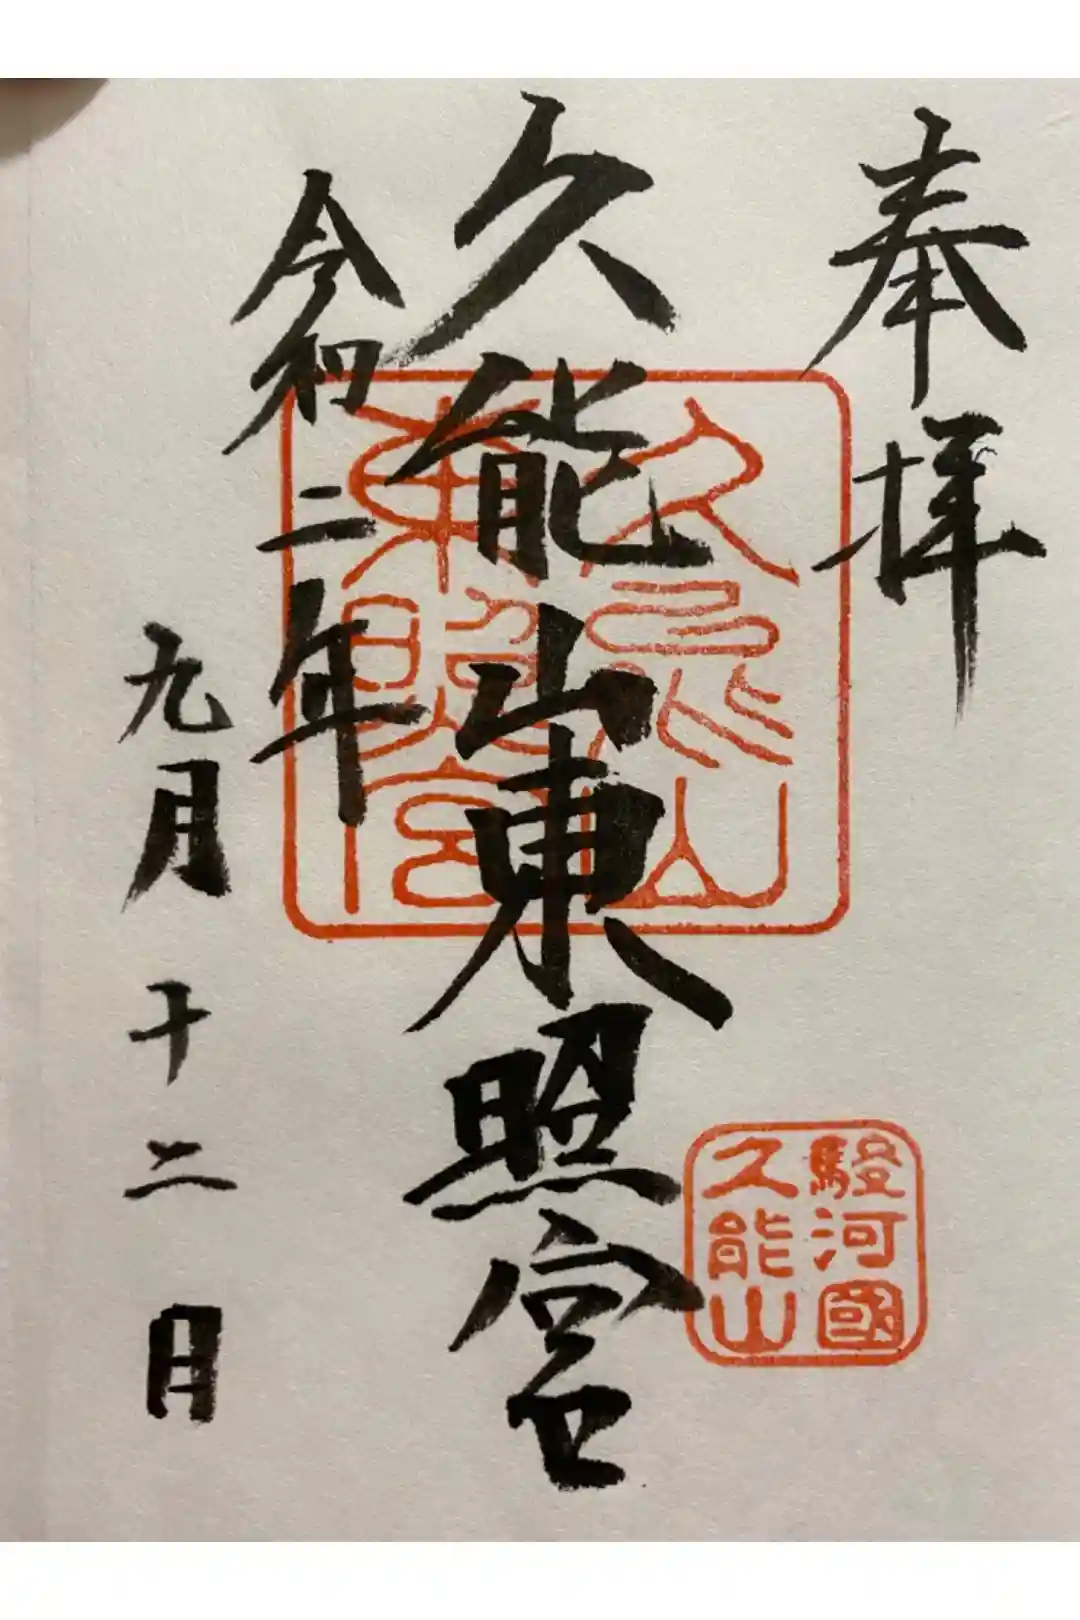 奉拝
久能山東照宮
令和二年
九月十二日
久能山
東照宮
駿河國
久能山